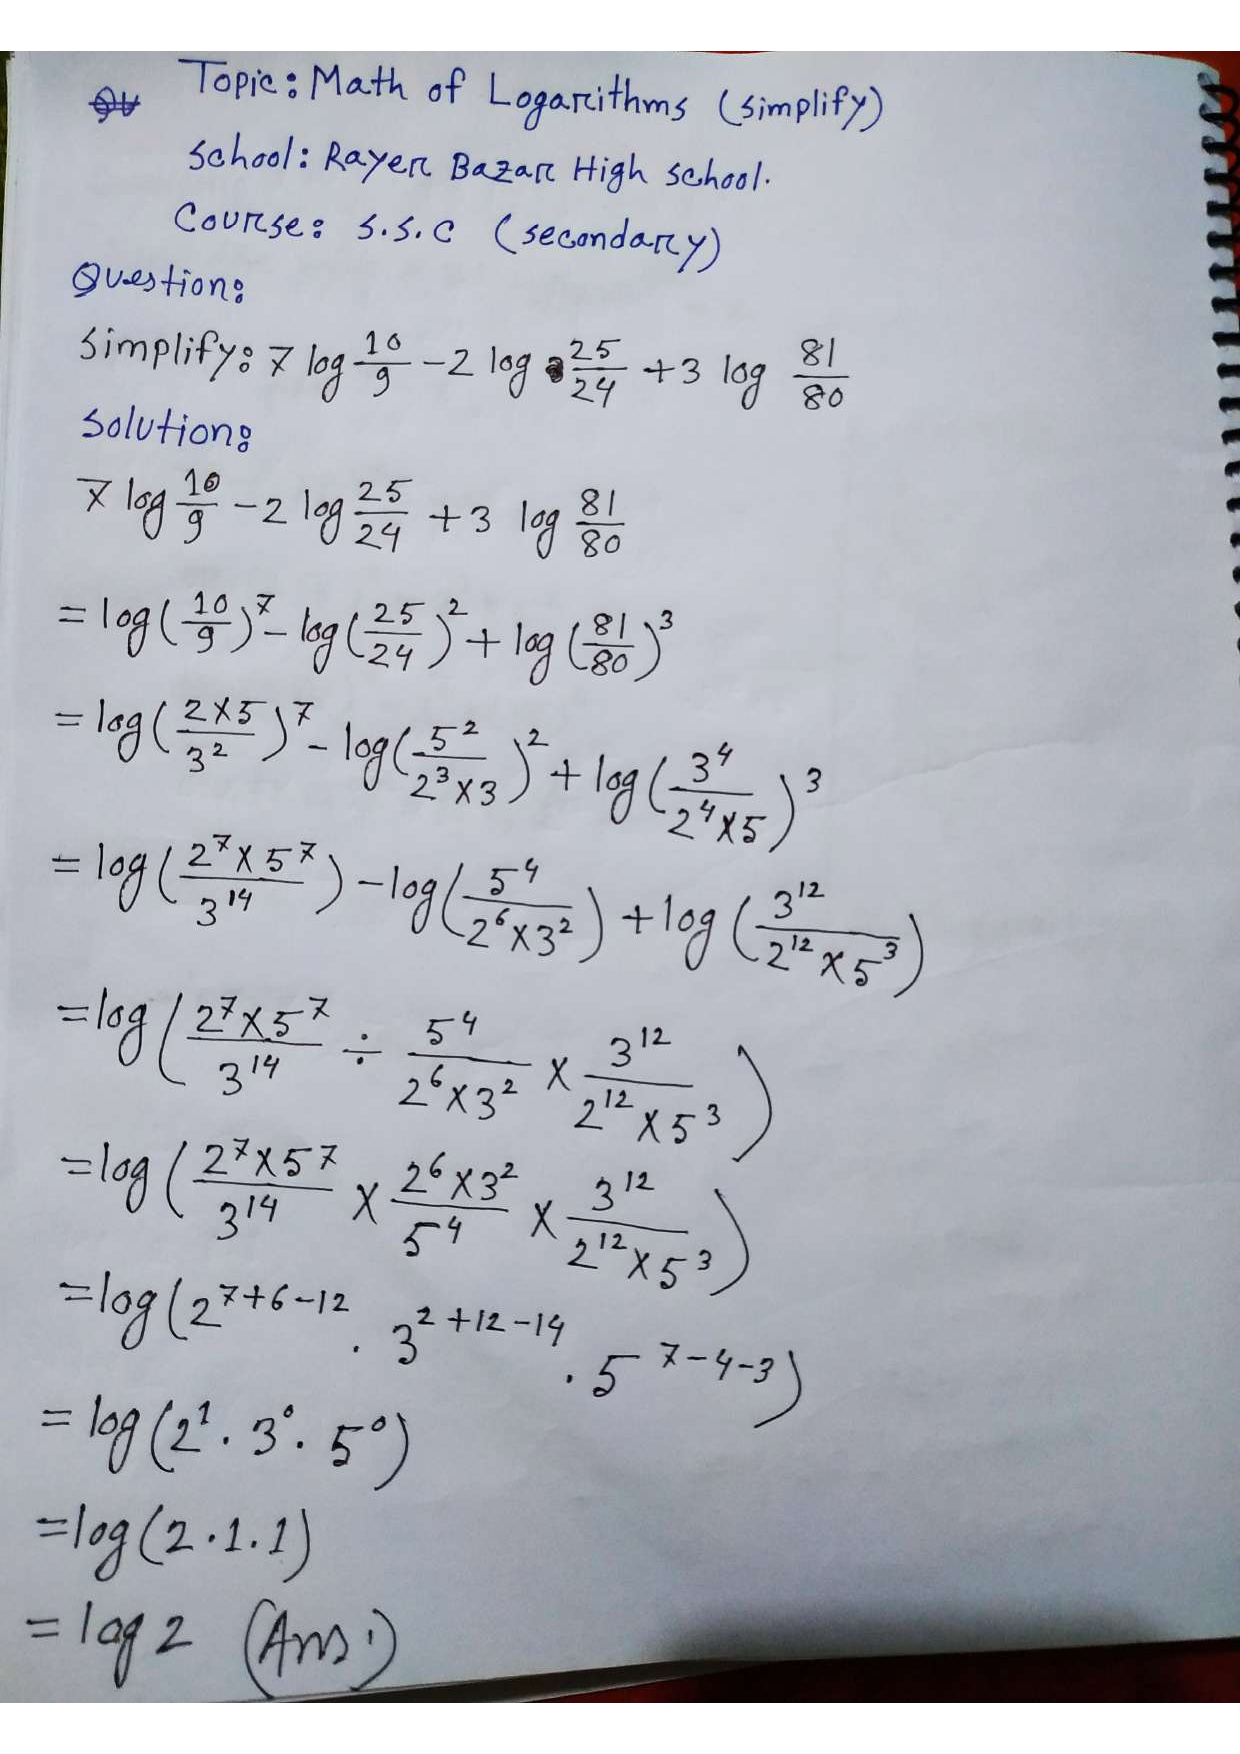 Topic: Math of Logarithms (simplify)
School: Rayer Bazar High school.
Course: S.S.C (secondary)
Question:
Simplify: 7 log 10/9 - 2 log 25/24 + 3 log 81/80
Solution:
7 log 10/9 - 2 log 25/24 + 3 log 81/80
= log(10/9)^7 - log(25/24)^2 + log(81/80)^3
= log((2×5)/3^2)^7 - log(5^2/(2^3×3))^2 + log(3^4/(2^4×5))^3
= log((2^7×5^7)/3^14) - log(5^4/(2^6×3^2)) + log(3^12/(2^12×5^3))
= log((2^7×5^7)/3^14 ÷ 5^4/(2^6×3^2) × 3^12/(2^12×5^3))
= log((2^7×5^7)/3^14 × (2^6×3^2)/5^4 × 3^12/(2^12×5^3))
= log(2^(7+6-12) . 3^(2+12-14) . 5^(7-4-3))
= log(2^1 . 3^0 . 5^0)
= log(2.1.1)
= log 2 (Ans:)